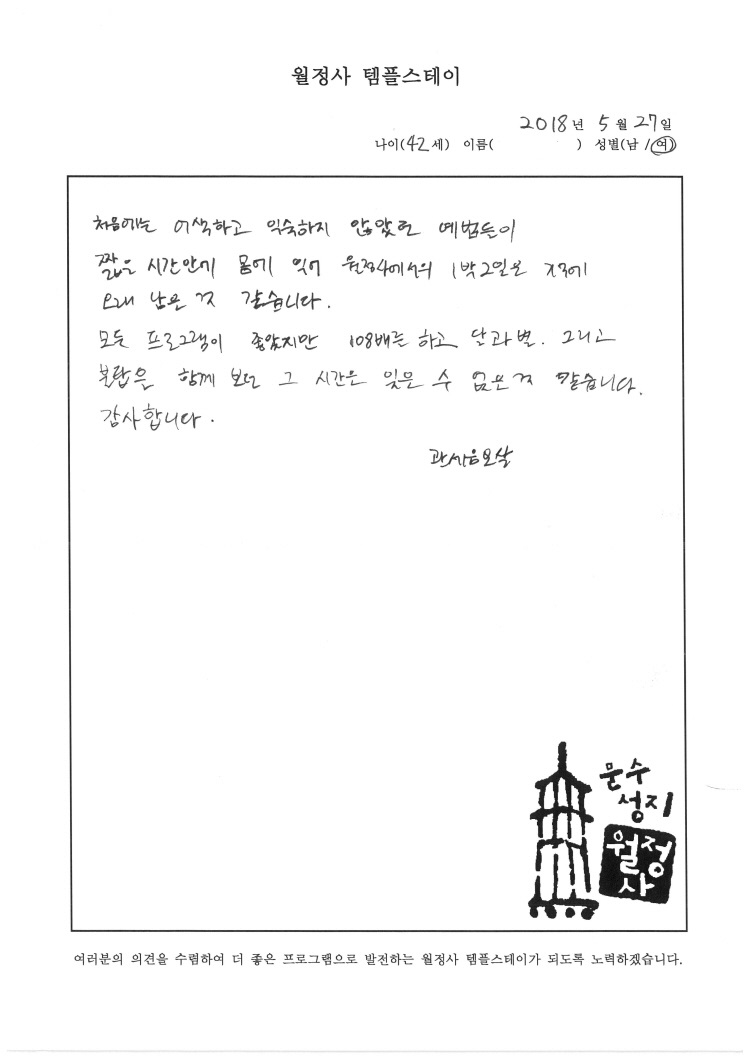 월정사 템플스테이
2018년 5월 27일
나이(42세) 이름( ) 성별(남/여)
처음에는 어색하고 익숙하지 않았던 예법들이
짧은 시간안에 몸에 익어 월정사에서의 1박2일은
오래 남을 것 같습니다.
모든 프로그램이 좋았지만 108배를 하고 달과 별. 그리고
불탑을 함께 보던 그 시간은 잊을 수 없을 것 같습니다.
감사합니다.
관세음보살
문수
성지
월정
사
여러분의 의견을 수렴하여 더 좋은 프로그램으로 발전하는 월정사 템플스테이가 되도록 노력하겠습니다.